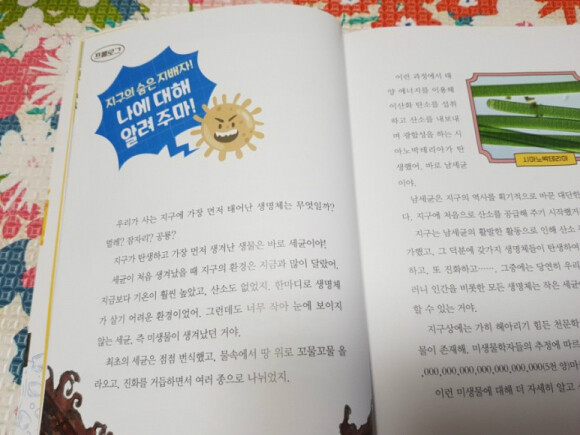 프롤로그
지구의 숨은 지배자!
나에 대해
알려 주마!
우리가 사는 지구에 가장 먼저 태어난 생명체는 무엇일까?
벌레? 잠자리? 공룡?
지구가 탄생하고 가장 먼저 생겨난 생물은 바로 세균이야!
세균이 처음 생겨났을 때 지구의 환경은 지금과 많이 달랐어.
지금보다 기온이 훨씬 높았고, 산소도 없었지. 한마디로 생명체
가 살기 어려운 환경이었어. 그런데도 너무 작아 눈에 보이지
않는 세균, 즉 미생물이 생겨났던 거야.
최초의 세균은 점점 번식했고, 물속에서 땅 위로 꼬물꼬물 올
라오고, 진화를 거듭하면서 여러 종으로 나뉘었지.
이런 과정에서 태
양 에너지를 이용해
이산화 탄소를 섭취
하고 산소를 내보내
며 광합성을 하는 시
아노박테리아가 탄
생했어. 바로 남세균
이야.
시아노박테리아
남세균은 지구의 역사를 획기적으로 바꾼 대단한
다. 지구에 처음으로 산소를 공급해 주기 시작했
지구는 남세균의 활발한 활동으로 인해 산소
가했고, 그 덕분에 갖가지 생명체들이 탄생하
하고, 또 진화하고……. 그중에는 당연히 우리
러니 인간을 비롯한 모든 생명체는 작은 세균
할 수 있는 거야.
지구상에는 가히 헤아리기 힘든 천문학
물이 존재해. 미생물학자들의 추정에 따르
,000,000,000,000,000,000,000(5천 양)마
이런 미생물에 대해 더 자세히 알고